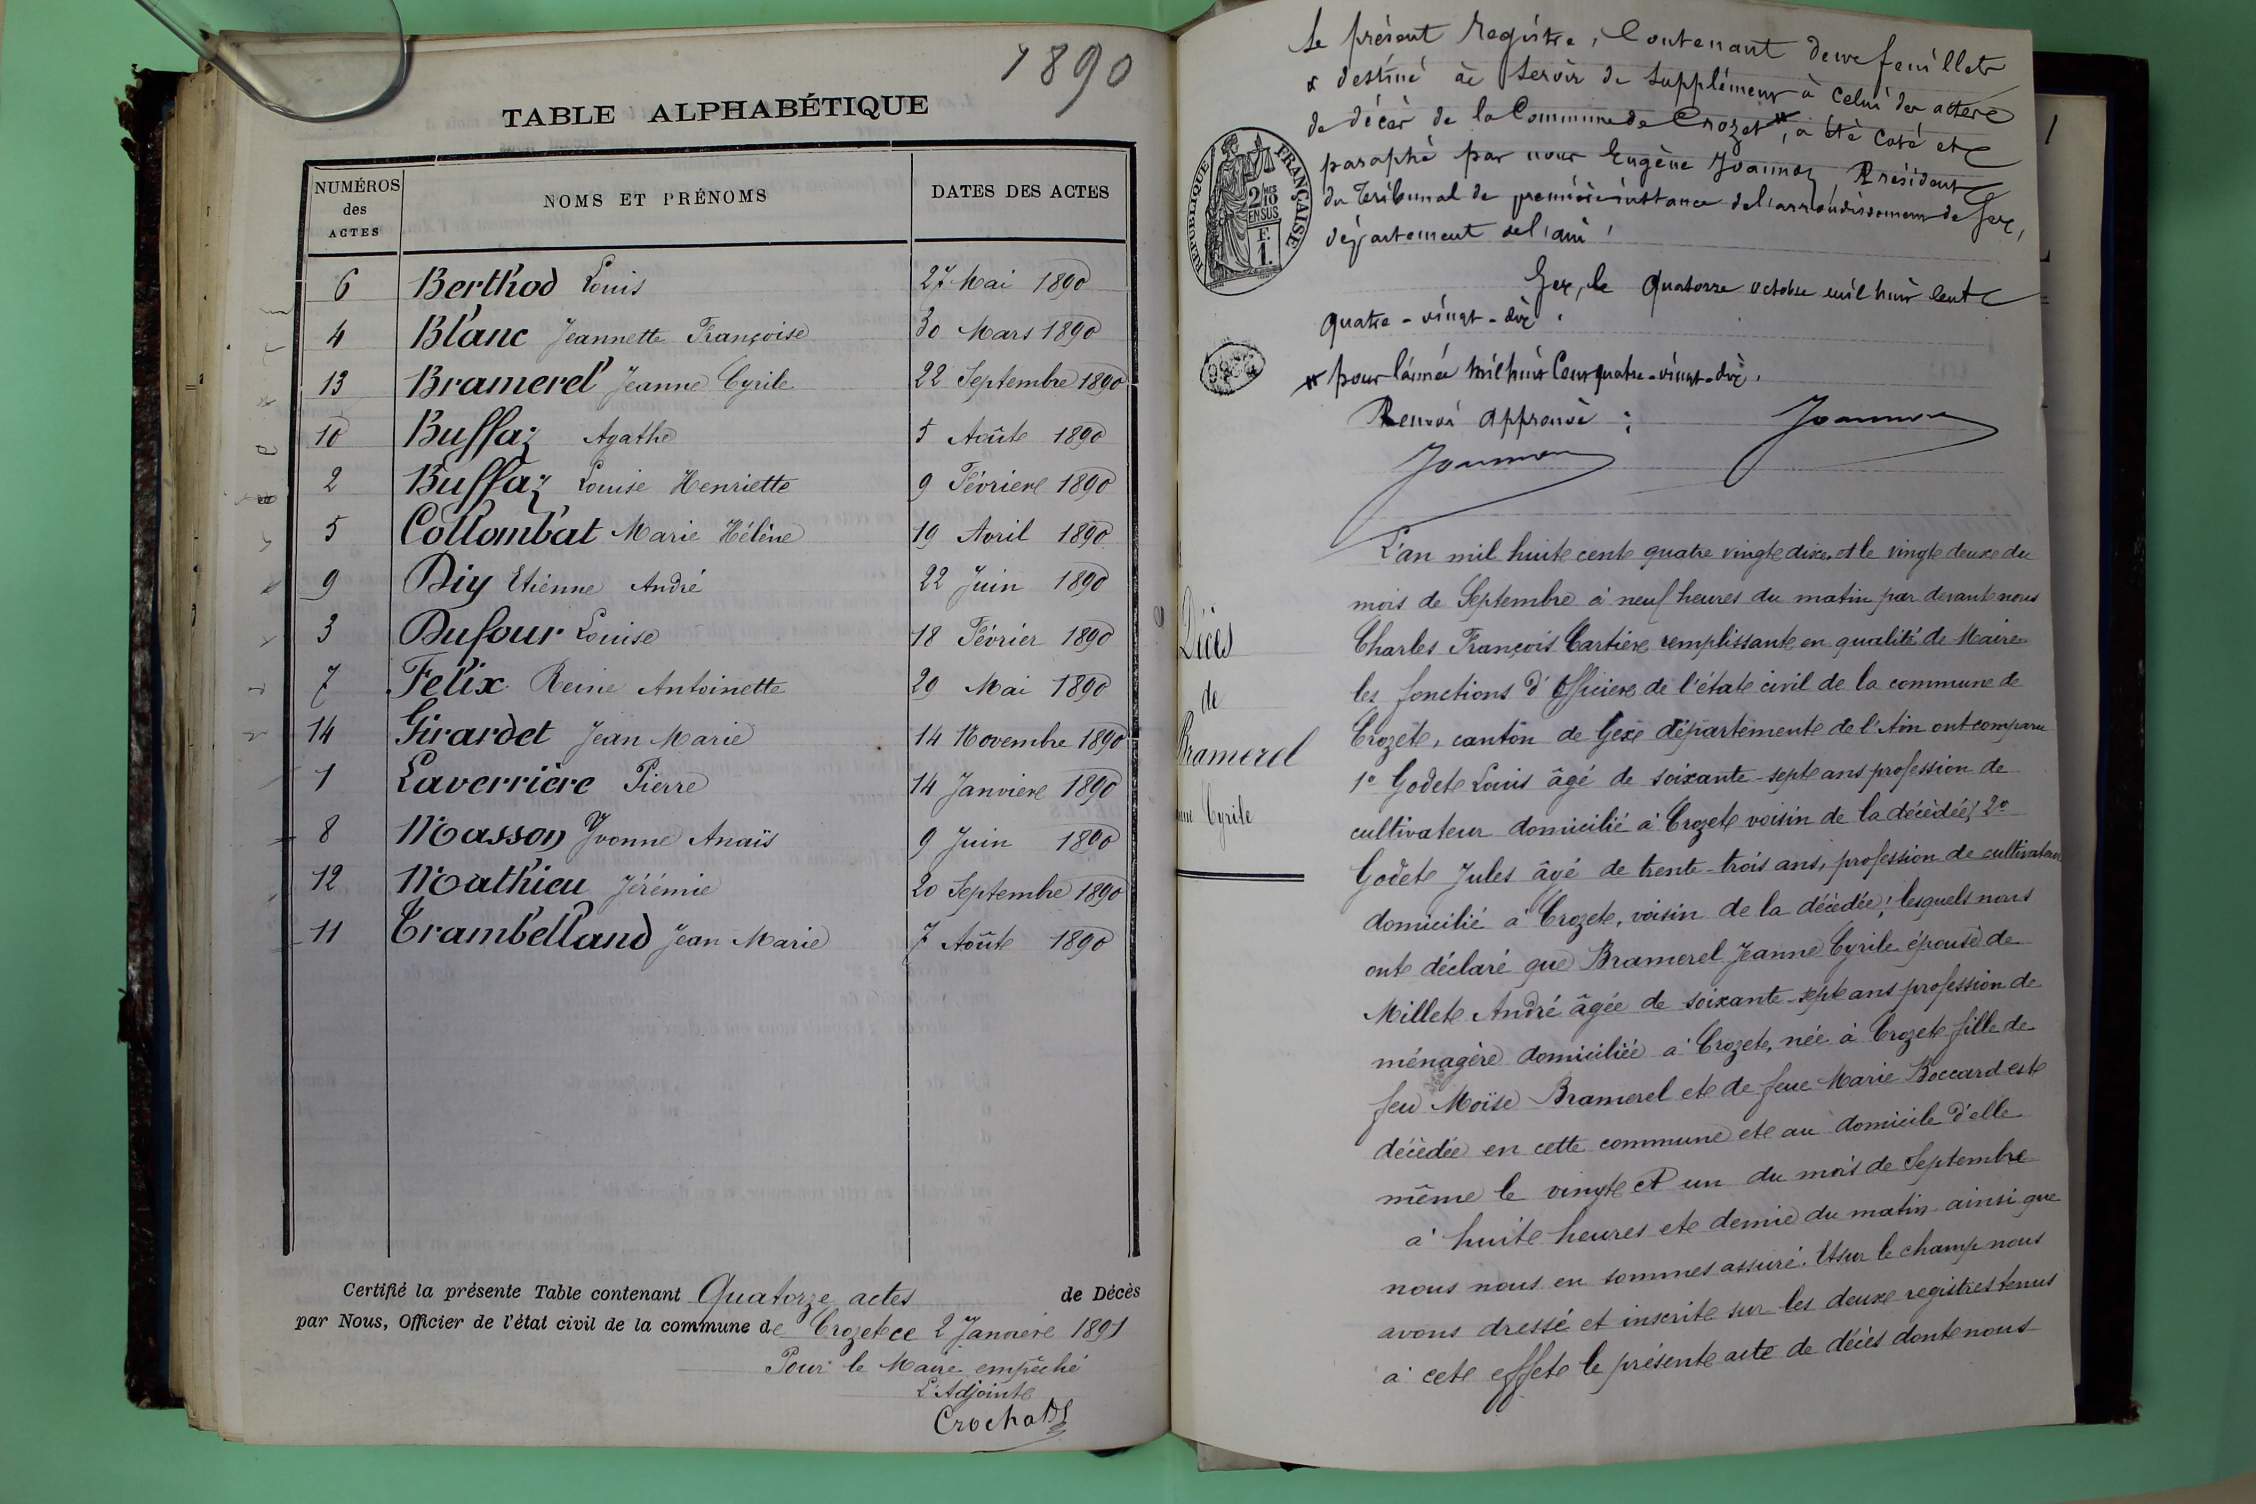 1890
TABLE ALPHABÉTIQUE
NUMÉROS des ACTES
NOMS ET PRÉNOMS
DATES DES ACTES
6 Berthod Louis 27 Mai 1890
4 Blanc Jeannette Françoise 30 Mars 1890
13 Bramerel Jeanne Cyrile 22 Septembre 1890
10 Buffaz Agathe 5 Août 1890
2 Buffaz Louise Henriette 9 Février 1890
5 Collombat Marie Hélène 19 Avril 1890
9 Diy Etienne André 22 Juin 1890
3 Dufour Louise 18 Février 1890
7 Felix Reine Antoinette 29 Mai 1890
14 Girardet Jean Marie 14 Novembre 1890
1 Laverrière Pierre 14 Janvier 1890
8 Masson Yvonne Anaïs 9 Juin 1890
12 Mathieu Jérémie 20 Septembre 1890
11 Trambelland Jean Marie 7 Août 1890
Certifié la présente Table contenant Quatorze actes de Décès
par Nous, Officier de l'état civil de la commune de Crozet ce 2 Janvier 1891
Pour le Maire empêché
L'Adjoint
Crochat
Le présent Registre, Contenant deux feuillets
& destiné à servir de Supplément à celui des actes
de décès de la Commune de Crozet, a été coté et
paraphé par nous Eugène Joannon, Président
du Tribunal de première instance de l'arrondissement de Gex,
département de l'ain.
RÉPUBLIQUE FRANÇAISE
2/10 EN SUS
F. 1.
Gex, le quatorze octobre mil huit cent
quatre-vingt-dix.
pour l'année mil huit Cent quatre-vingt-dix.
Renvoi approuvé :
Joannon
Joannon
Décès
de
Bramerel
Cyrile
L'an mil huit cent quatre vingt dix et le vingt deux du
mois de Septembre à neuf heures du matin par devant nous
Charles François Cartier remplissant en qualité de Maire
les fonctions d'Officier de l'état civil de la commune de
Crozet, canton de Gex département de l'Ain ont comparu
1º Godet Louis âgé de soixante-sept ans profession de
cultivateur domicilié à Crozet voisin de la décédée; 2º
Godet Jules âgé de trente-trois ans, profession de cultivateur
domicilié à Crozet, voisin de la décédée; lesquels nous
ont déclaré que Bramerel Jeanne Cyrile épouse de
Millet André âgée de soixante-sept ans profession de
ménagère domiciliée à Crozet, née à Crozet fille de
feu Moïse Bramerel et de feue Marie Boccard est
décédée en cette commune et au domicile d'elle
même le vingt et un du mois de Septembre
à huit heures et demie du matin ainsi que
nous nous en sommes assuré. Et sur le champ nous
avons dressé et inscrit sur les deux registres tenus
à cet effet le présent acte de décès dont nous